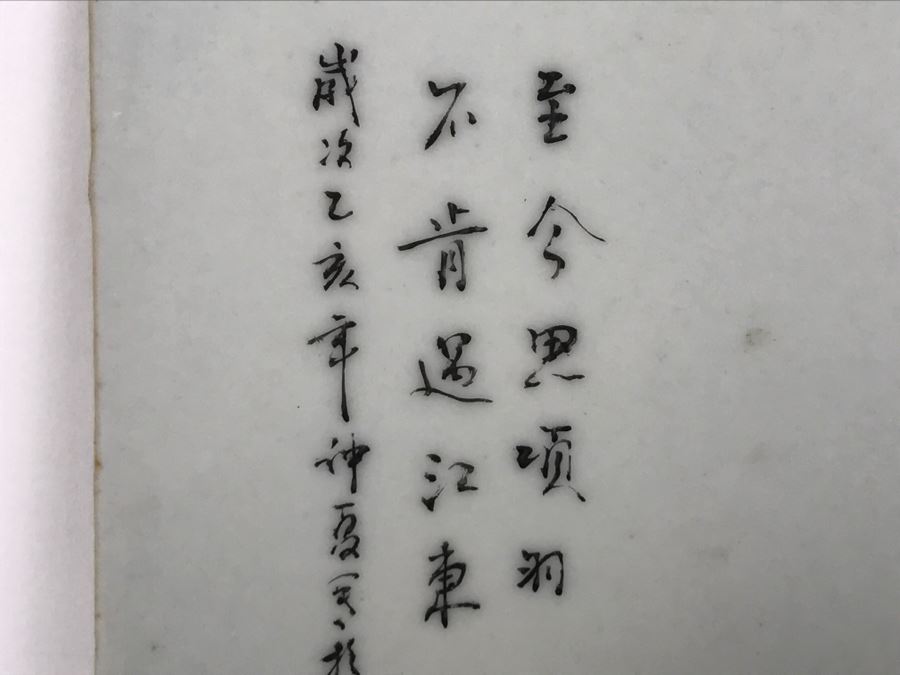 至今思項羽
不肯過江東
歲次乙亥年仲夏寫於